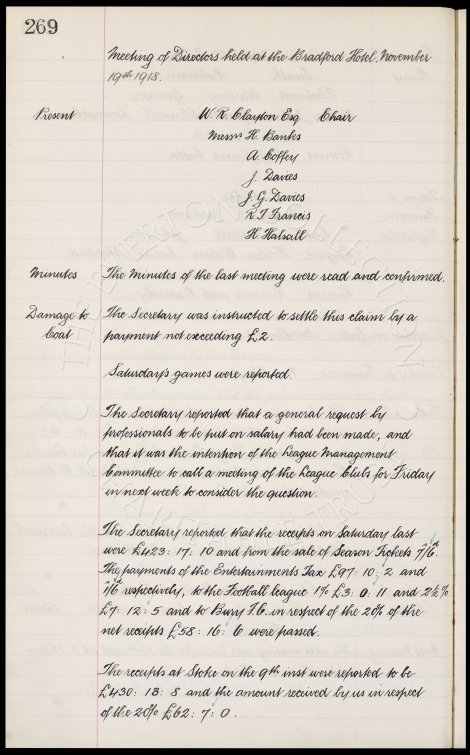 269
Meeting of Directors held at the Bradford Hotel, November
19th 1918.
Present W. R. Clayton Esq Chair
Messrs H. Banks
A. Coffey
J. Davies
J. G. Davies
R. T. Francis
H. Halsall
Minutes The Minutes of the last meeting were read and confirmed.
Damage to The Secretary was instructed to settle this claim by a
Coat payment not exceeding £2.
Saturday's games were reported.
The Secretary reported that a general request by
professionals to be put on salary had been made, and
that it was the intention of the League Management
Committee to call a meeting of the League Clubs for Friday
in next week to consider the question.
The Secretary reported that the receipts on Saturday last
were £423: 17: 10 and from the sale of Season Tickets 7/6d.
The payments of the Entertainments Tax £97: 10: 2 and
1/6d respectively, to the Football League 1% £3: 0: 11 and 2½%
£7: 12: 5 and to Bury F.C. in respect of the 20% of the
net receipts £58: 16: 6 were passed.
The receipts at Stoke on the 9th inst were reported to be
£430: 13: 8 and the amount received by us in respect
of the 20% £62: 7: 0.